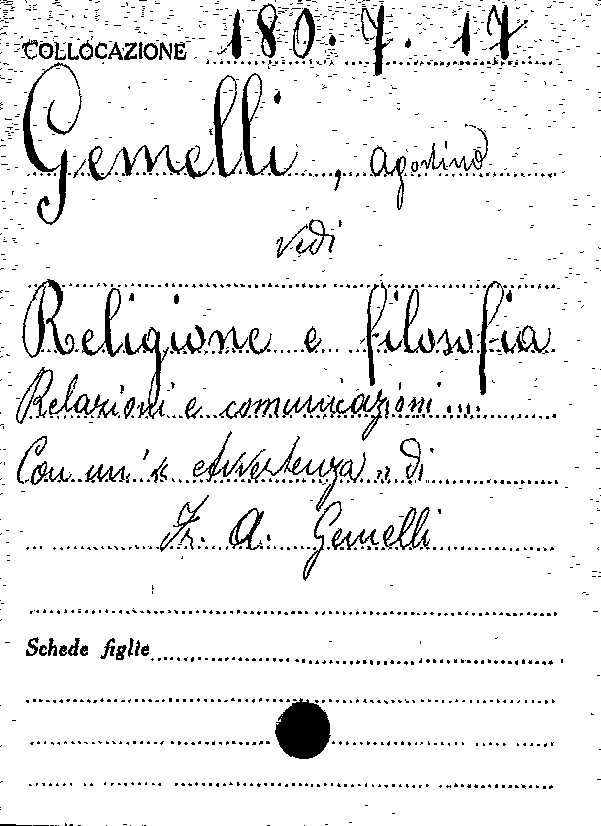 COLLOCAZIONE 180.7.17
Gemelli, Agostino
vedi
Religione e filosofia
Relazioni e comunicazioni...
Con un'« Avvertenza » di
Fr. A. Gemelli
Schede figlie